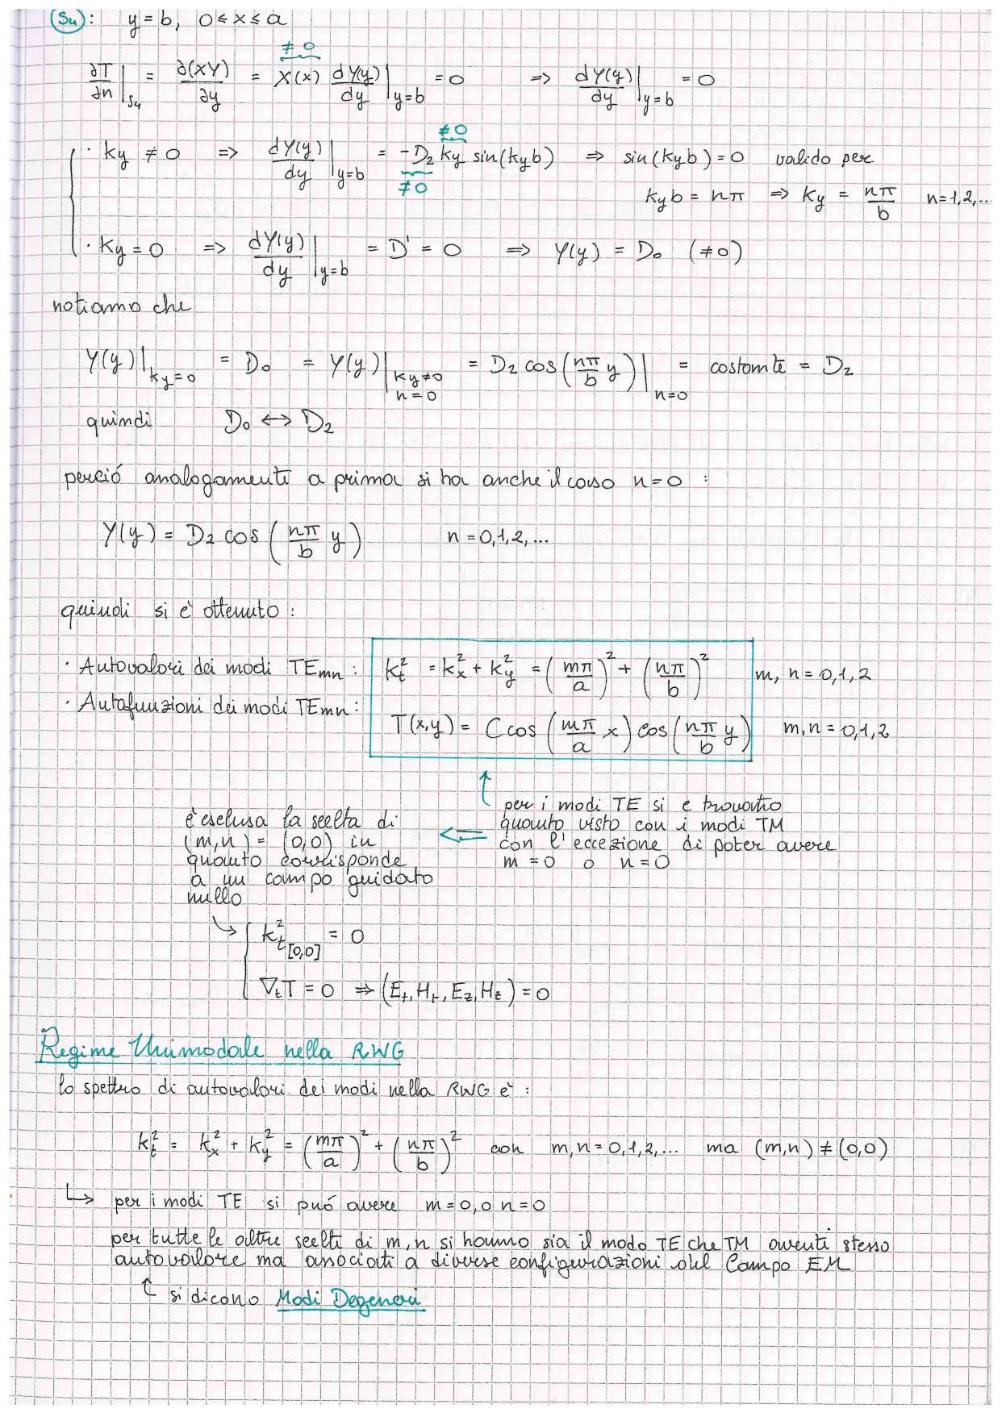 (S4): y = b, 0 ≤ x ≤ a
∂T/∂n|S4 = ∂(XY)/∂y = X(x) dY(y)/dy|y=b = 0 => dY(y)/dy|y=b = 0
≠ 0
· ky ≠ 0 => dY(y)/dy|y=b = -D2 ky sin(kyb) => sin(kyb) = 0 valido per
≠0
≠0
kyb = nπ => ky = nπ/b n=1,2,...
· ky = 0 => dY(y)/dy|y=b = D' = 0 => Y(y) = D0 (≠0)
notiamo che
Y(y)|ky=0 = D0 = Y(y)|ky≠0 n=0 = D2 cos(nπ/b y)|n=0 = costante = D2
quindi D0 ↔ D2
perció analogamente a prima si ha anche il caso n=0 :
Y(y) = D2 cos(nπ/b y) n = 0,1,2,...
quindi si é ottenuto :
· Autovalori dei modi TEmn : kt² = kx² + ky² = (mπ/a)² + (nπ/b)² m, n = 0,1,2
· Autofunzioni dei modi TEmn : T(x,y) = C cos(mπ/a x) cos(nπ/b y) m,n = 0,1,2
per i modi TE si e trovato
quanto visto con i modi TM
con l'eccezione di poter avere
m = 0 o n = 0
é esclusa la scelta di
(m,n) = (0,0) in
quanto corrisponde
a un campo guidato
nullo
kt²[0,0] = 0
∇tT = 0 => (Et, Ht, Ez, Hz) = 0
Regime Unimodale nella RWG
lo spettro di autovalori dei modi nella RWG é :
kt² = kx² + ky² = (mπ/a)² + (nπ/b)² con m,n = 0,1,2,... ma (m,n) ≠ (0,0)
↳ per i modi TE si puó avere m=0, o n=0
per tutte le altre scelte di m,n si hanno sia il modo TE che TM aventi stesso
autovalore ma associati a diverse configurazioni del Campo EM
si dicono Modi Degeneri